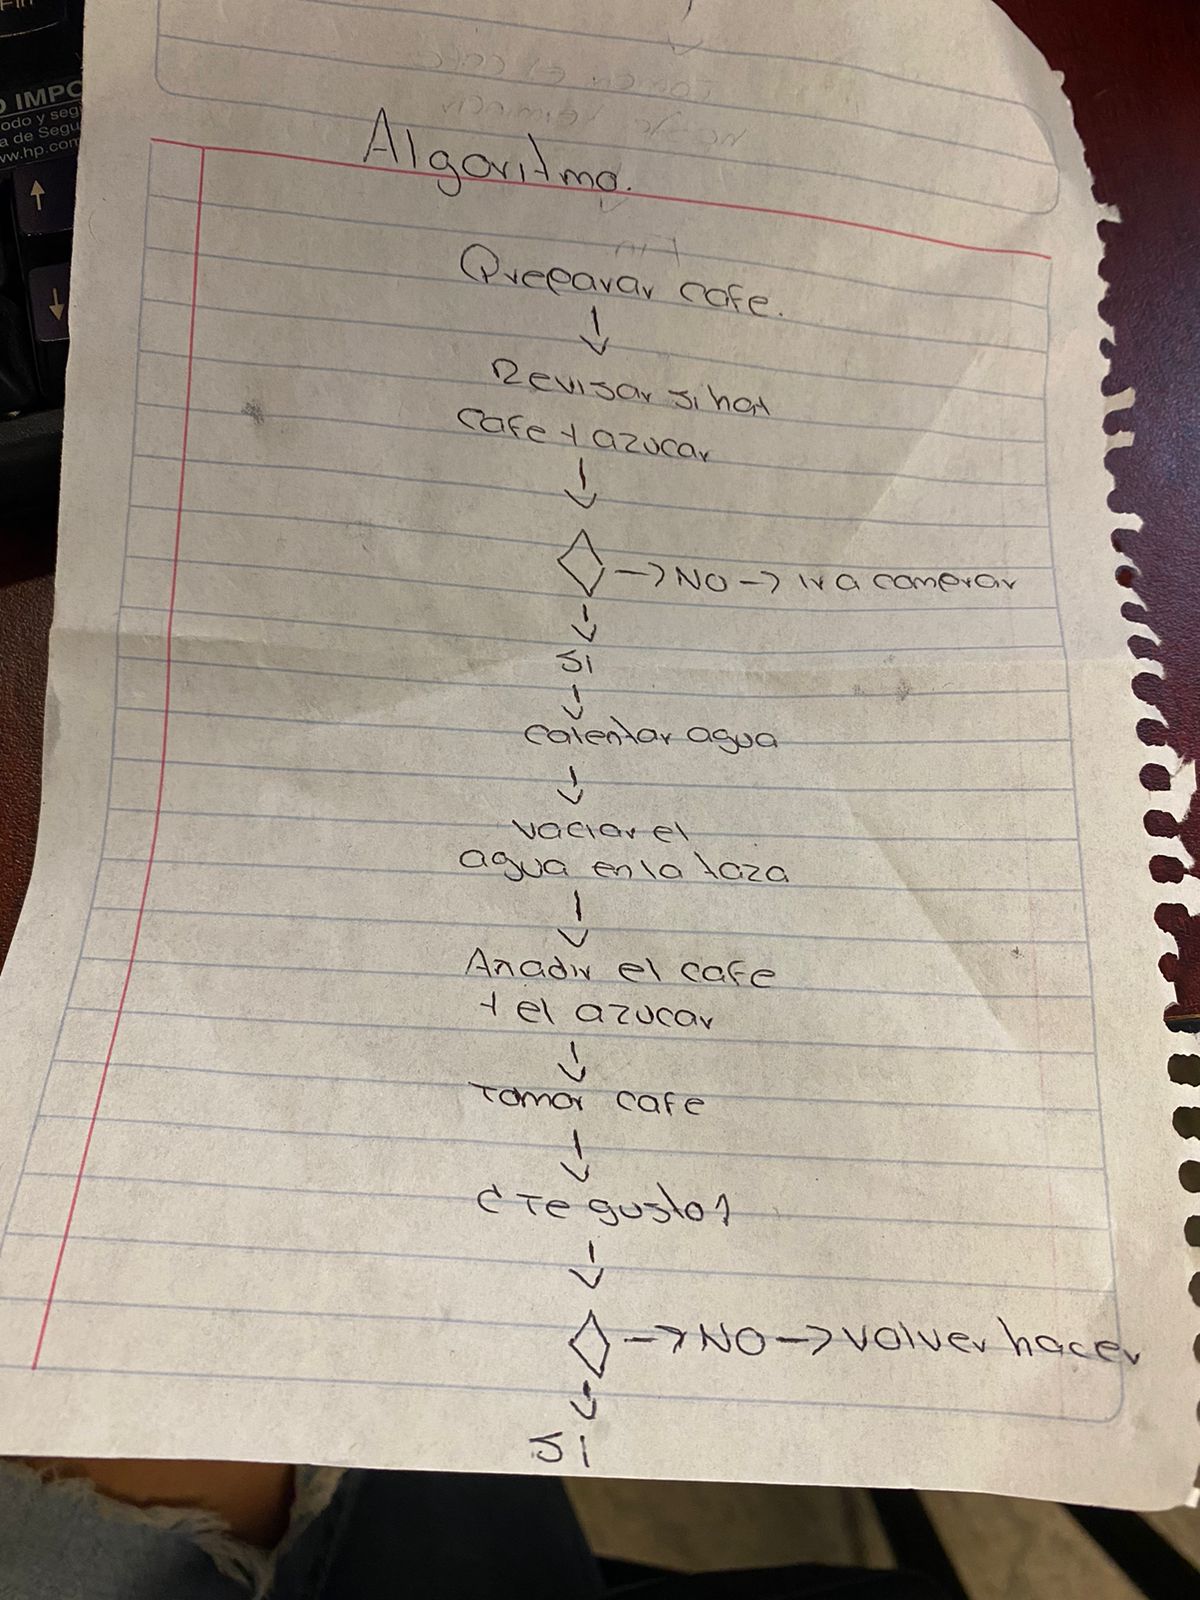 Fin
O IMPO
odo y seg
a de Segu
ww.hp.com
Algoritmo.
Preparar cafe.
Revisar si hay
cafe y azucar
NO ir a comprar
SI
calentar agua
vaciar el
agua en la taza
Añadir el cafe
y el azucar
Tomar cafe
¿Te gusto?
NO volver hacer
SI